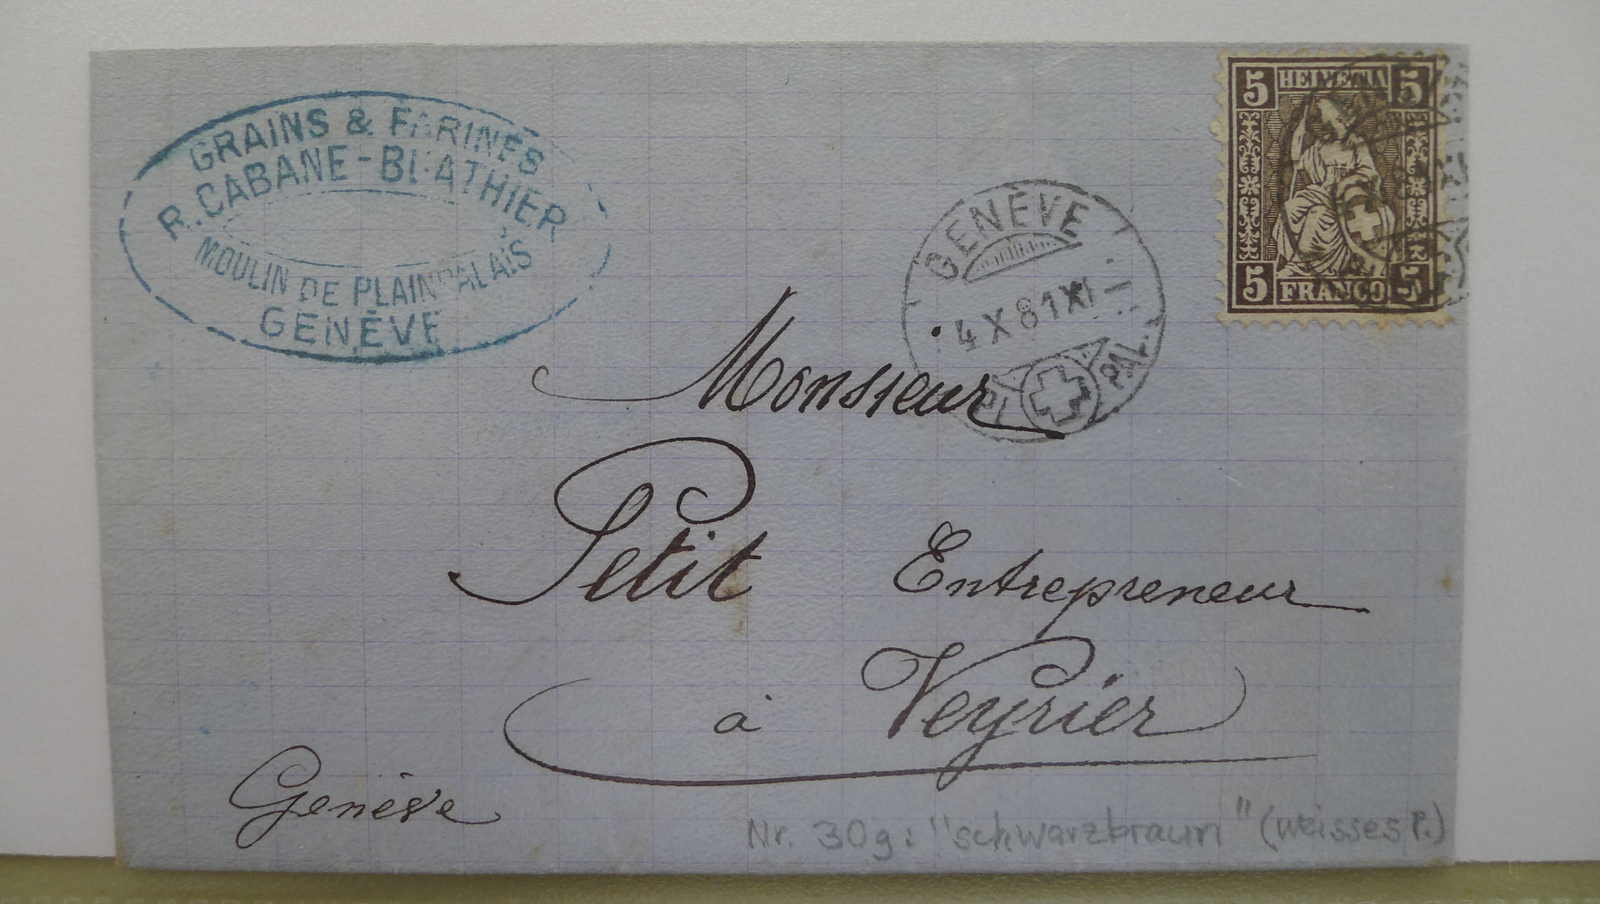 GRAINS & FARINES
R. CABANE-BLATHIER
MOULIN DE PLAINPALAIS
GENÈVE
GENÈVE
4 X 81 XI
PL PAL
5 HELVETIA 5
5 FRANCO 5
Monsieur
Petit Entrepreneur
à Veyrier
Genève
Nr. 30g: "schwarzbraun" (weisses P.)